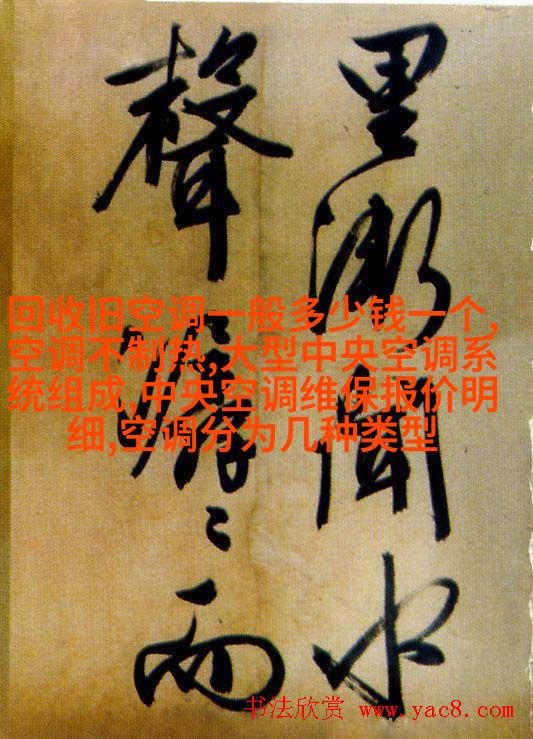 里漸聞水
聲潺〻而
回收旧空调一般多少钱一个,
空调不制热,大型中央空调系
统组成,中央空调维保报价明
细,空调分为几种类型
书法欣赏 www.yac8.com